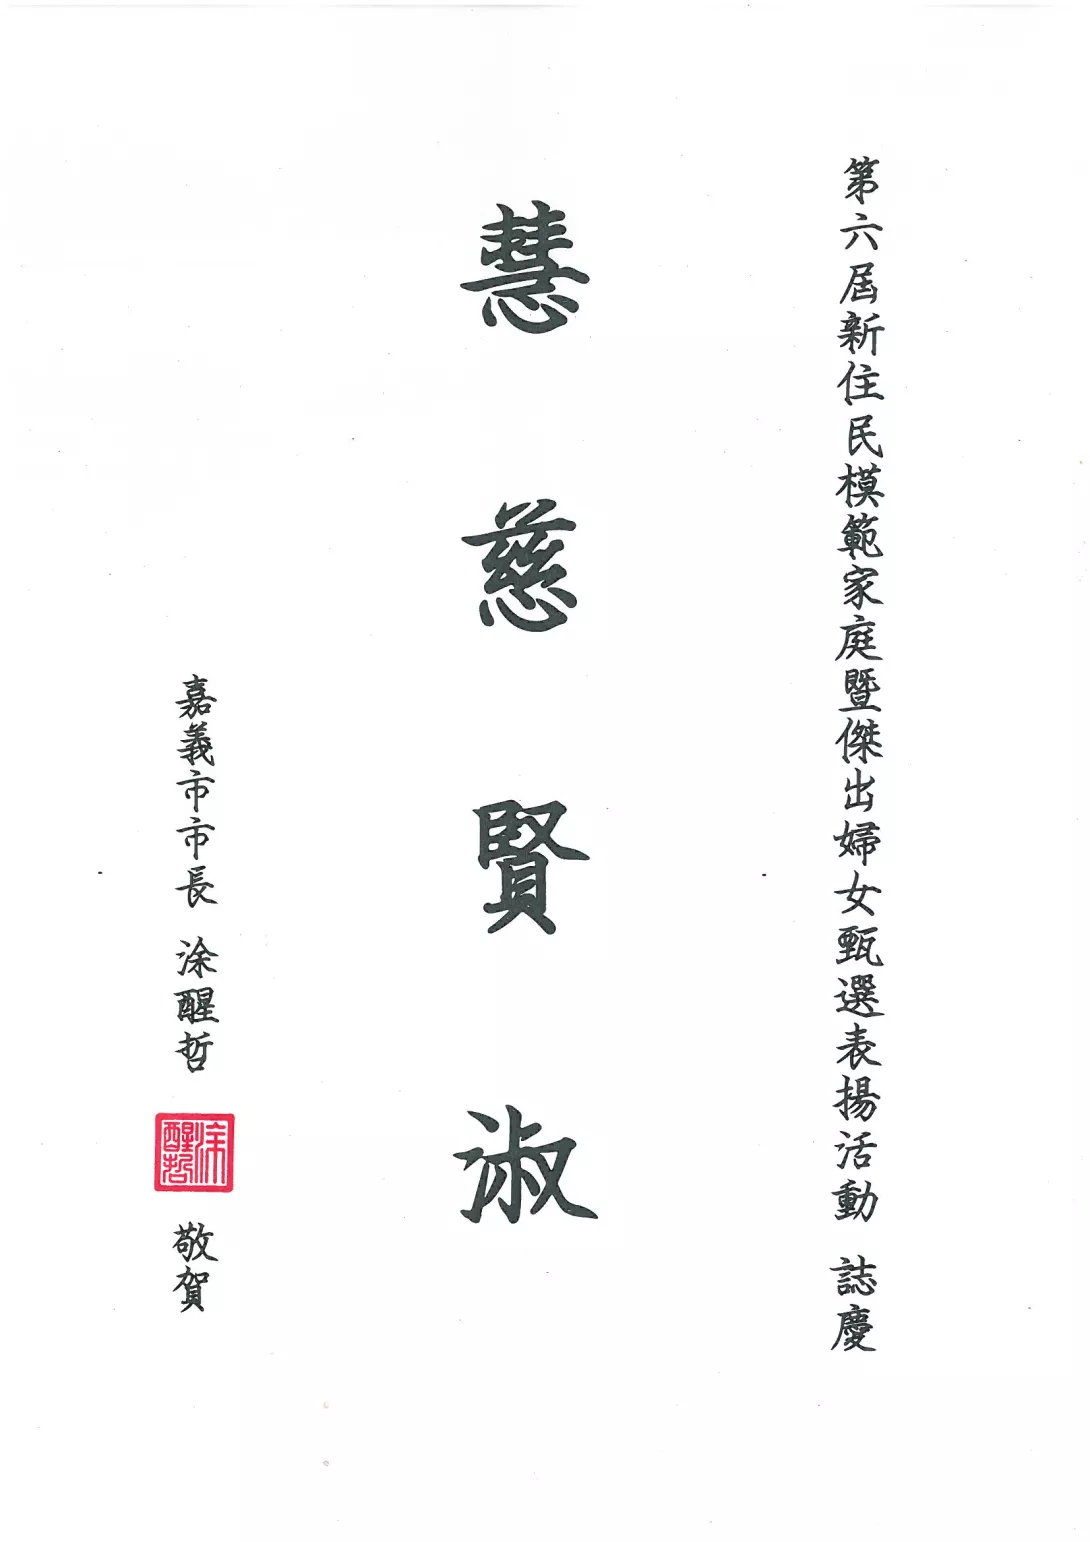 第六屆新住民模範家庭暨傑出婦女甄選表揚活動 誌慶
慧慈賢淑
嘉義市市長 涂醒哲
涂醒哲
敬賀